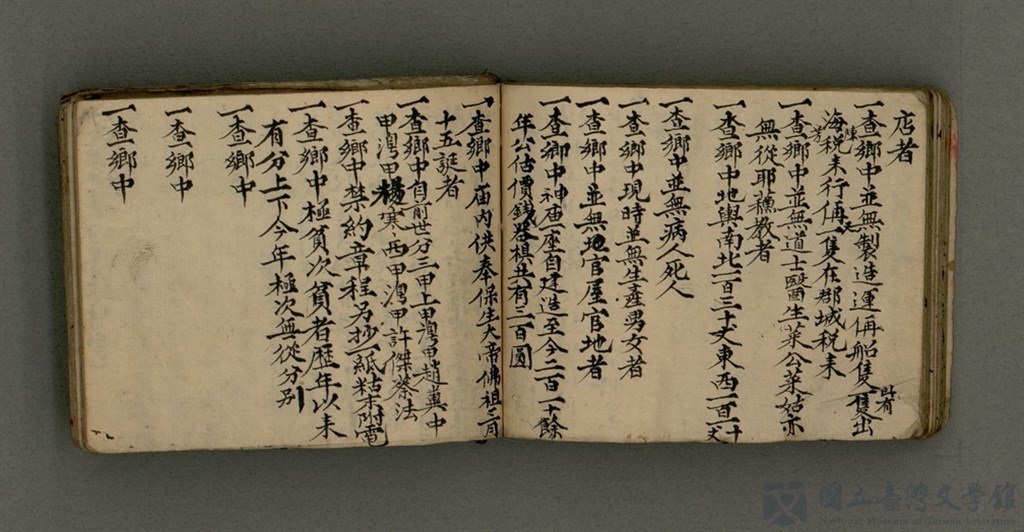 店者
一查鄉中並無製造運俩船隻隻出時有
海税未行俩一隻在郡城税未
一查鄉中並無道士醫生菜公菜姑亦
無從耶蘓教者
一查鄉中地輿南北一百三十丈東西一百一十丈
一查鄉中並無病人死人
一查鄉中現時並無生產男女者
一查鄉中並無地官屋官地者
一查鄉中神庙一座自建造至今二百一十餘
年公估價錢器棋共有三百圓
一查鄉中庙内供奉保生大帝佛祖三月
十五誕者
一查鄉中自前世分三甲上甲灣甲趙萬中
甲灣甲楊寒西甲灣甲許傑蔡法
一查鄉中禁約章程另抄一紙粘末附電
一查鄉中極貧次貧者歷年以来
有分上下今年極次無從分别
一查鄉中
一查鄉中
一查鄉中
國立臺灣文學館
National Museum of Taiwan Literature